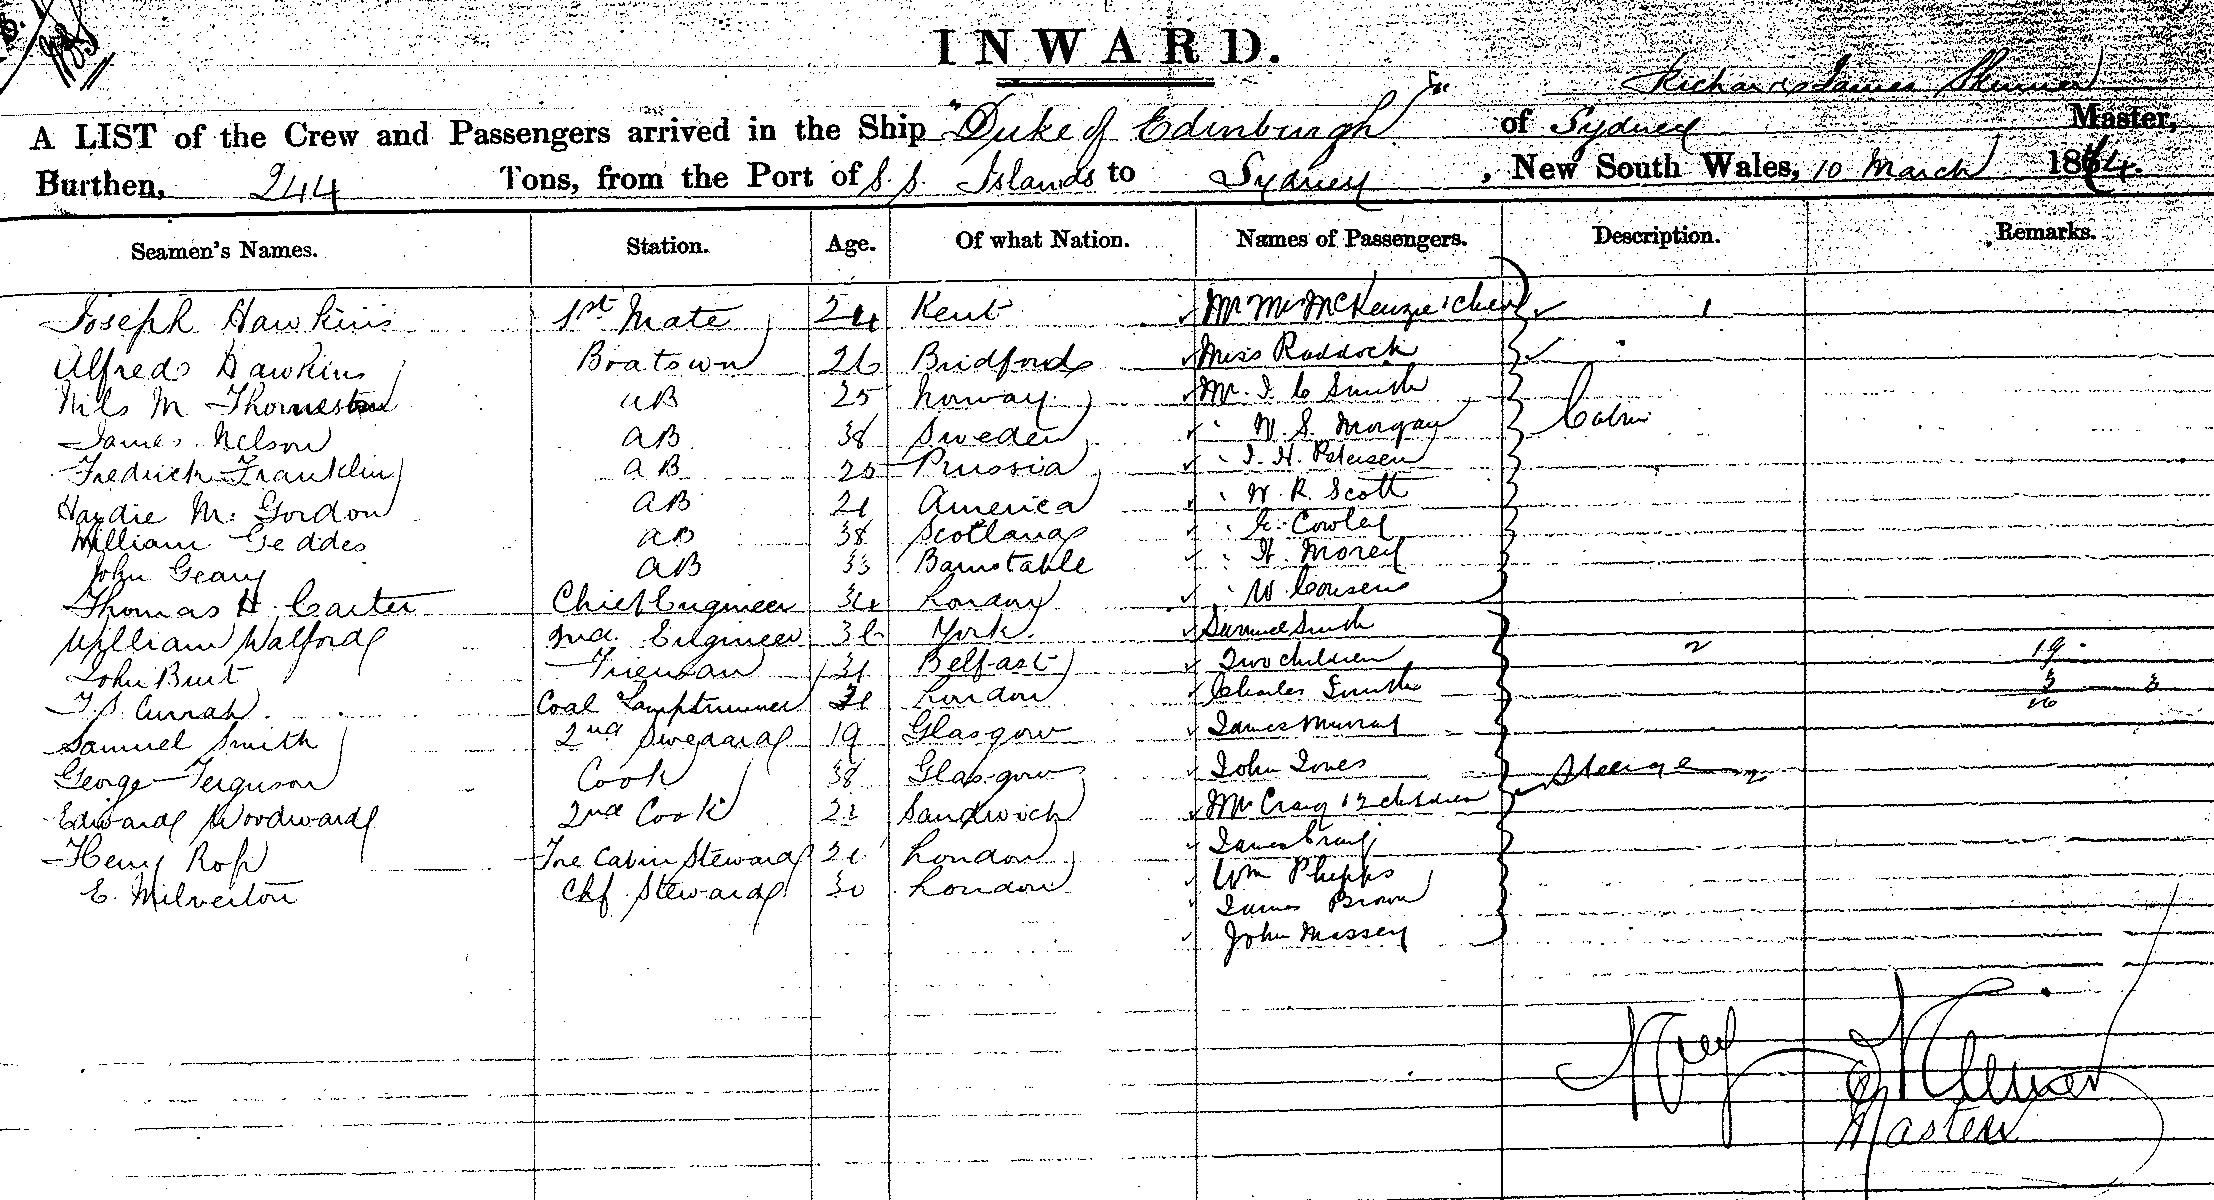 INWARD.
Richard James Skinner
A LIST of the Crew and Passengers arrived in the Ship "Duke of Edinburgh" of Sydney Master,
Burthen, 244 Tons, from the Port of S. S. Islands to Sydney, New South Wales, 10 March 1884.
Seamen's Names. Station. Age. Of what Nation. Names of Passengers. Description. Remarks.
Joseph Hawkins 1st Mate 24 Kent Mr Mrs McKenzie 1 child 1
Alfred Hawkins Boatswn 26 Bridford Miss Ruddock
Nils M AB 25 Norway Mr. J C Smith
James Nelson AB 38 Sweden " W S Morgan Cabin
Fredrick Franklin AB 25 Prussia " J. H. Petersen
Hardie M. Gordon AB 21 America " W. R. Scott
William Geddes AB 38 Scotland " G. Cowley
John Geary AB 33 Barnstable " H Morey
Thomas H. Carter Chief Engineer 34 London " W Cousens
William Walford 2nd Engineer 36 York Samuel Smith
John Burt Fireman 31 Belfast Two children 2 19
T. S. Currah Coal Lamptrimmer London Charles Smith 3 3
Samuel Smith 2nd Steward 19 Glasgow James Murray
George Ferguson Cook 38 Glasgow John Jones Steerage
Edward Woodward 2nd Cook 22 Sandwich Mrs Craig & 2 children
Henry Ross Fre Cabin Steward 21 London James Craig
E. Milverton Chf Steward 30 London Wm Phipps
James Brown
John Massey
Master